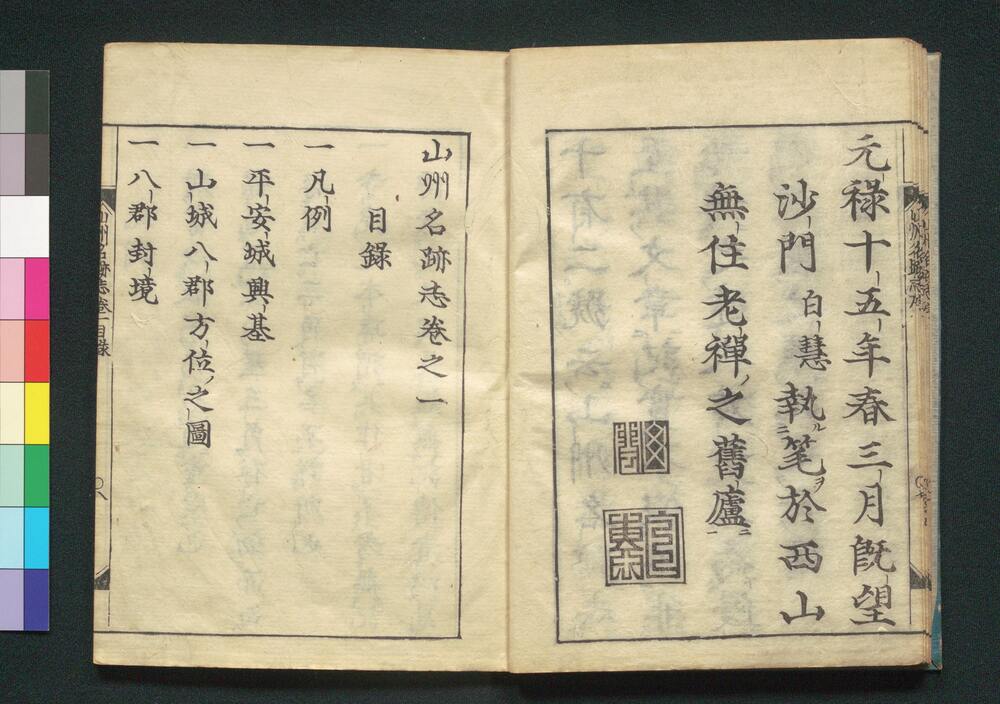 元禄十五年春三月既望
沙門白慧執ル筆ヲ於西山
無住老禅ノ之舊廬ニ
山州名跡志巻之一
目録
一 凡例
一 平安城興基
一 山城八郡方位ノ之圖
一 八郡封境
山州名跡志巻一目録